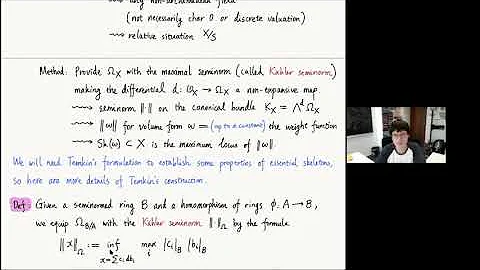 ⇝ any non-archimedean field
(not necessarily char 0 or discrete valuation)
⇝ relative situation X/S
Method: Provide Ω_X with the maximal seminorm (called Kähler seminorm)
making the differential d: 𝒪_X → Ω_X a non-expansive map.
⇝ seminorm ‖·‖ on the canonical bundle K_X = Λ^d Ω_X
⇝ ‖ω‖ for volume form ω = (up to a constant) the weight function
⇝ Sk(ω) ⊂ X is the maximum locus of ‖ω‖.
We will need Temkin's formulation to establish some properties of essential skeletons,
so here are more details of Temkin's construction.
Def: Given a seminormed ring B and a homomorphism of rings φ: A → B,
we equip Ω_{B/A} with the Kähler seminorm ‖·‖_Ω by the formula
‖x‖_Ω := inf_{x=Σc_i db_i} max_i |c_i|_B |b_i|_B